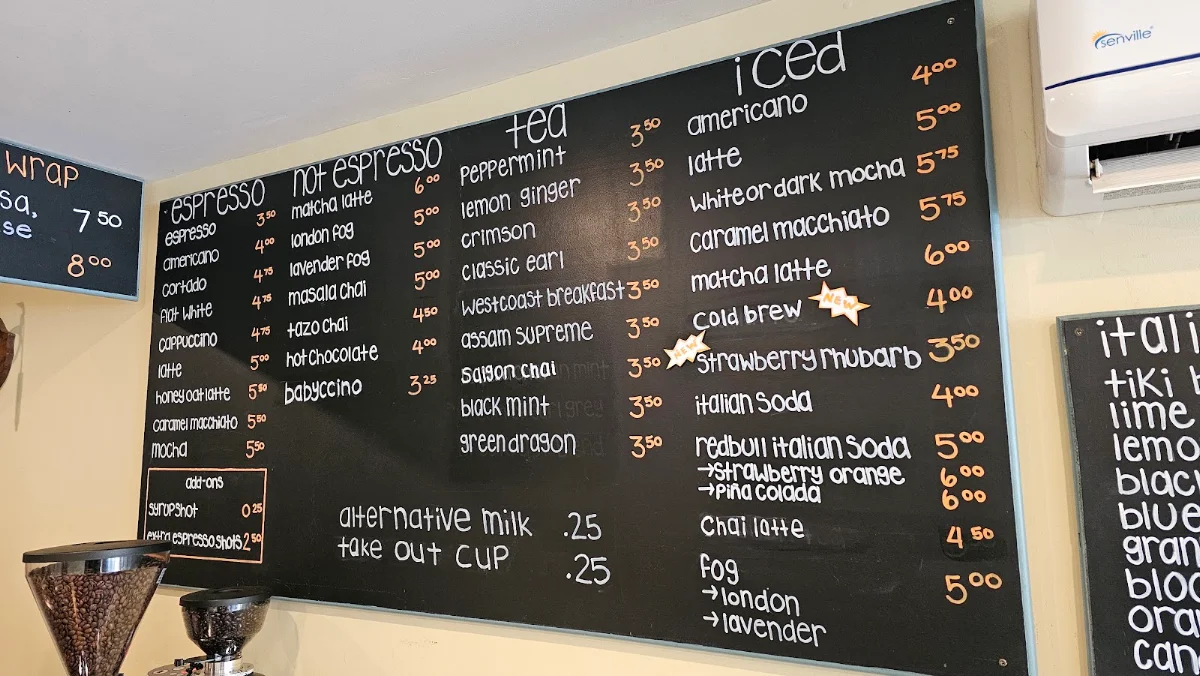 wrap
7 50
8 00
espresso
espresso 3 50
americano 4 00
cortado 4 75
flat white 4 75
cappuccino 4 75
latte 5 00
honey oat latte 5 50
caramel macchiato 5 50
mocha 5 50
add-ons
syrup shot 0 25
extra espresso shots 2 50
not espresso
matcha latte 6 00
london fog 5 00
lavender fog 5 00
masala chai 5 00
tazo chai 4 50
hot chocolate 4 00
babyccino 3 25
alternative milk .25
take out cup .25
tea
peppermint 3 50
lemon ginger 3 50
crimson 3 50
classic earl 3 50
westcoast breakfast 3 50
assam supreme 3 50
saigon chai 3 50
black mint 3 50
green dragon 3 50
iced
americano 4 00
latte 5 00
white or dark mocha 5 75
caramel macchiato 5 75
matcha latte 6 00
cold brew NEW 4 00
NEW strawberry rhubarb 3 50
italian soda 4 00
redbull italian soda 5 00
→strawberry orange 6 00
→piña colada 6 00
chai latte 4 50
fog 5 00
→london
→lavender
senville
tiki
lime